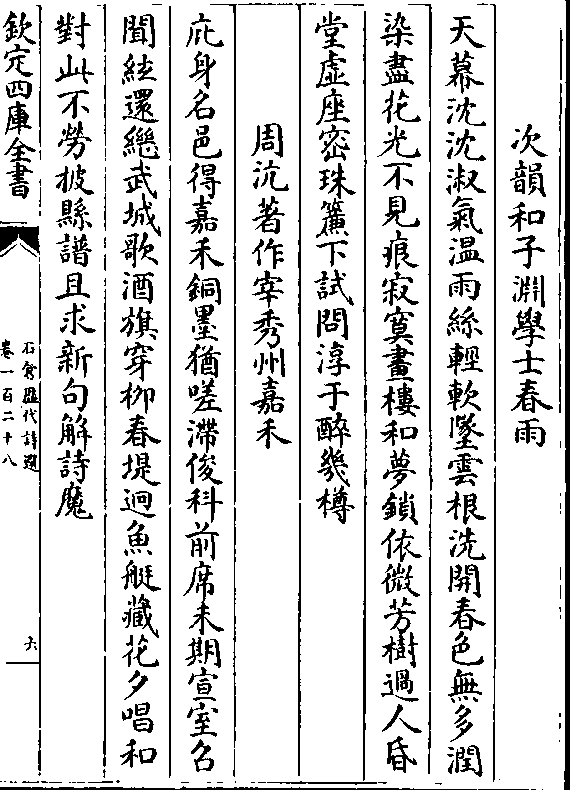 次韻和子淵學士春雨
天幕沈沈淑氣温雨絲輕軟墜雲根洗開春色無多潤
染盡花光不見痕寂寞畫樓和夢鎖依微芳樹過人昏
堂虛座密珠簾下試問淳于醉幾樽
周沆著作宰秀州嘉禾
庇身名邑得嘉禾銅墨猶嗟滯俊科前席未期宣室召
聞絃還繼武城歌酒旗穿柳春堤迥魚艇藏花夕唱和
對此不勞披縣譜且求新句解詩魔
欽定四庫全書
石倉歷代詩選
卷一百二十八
六